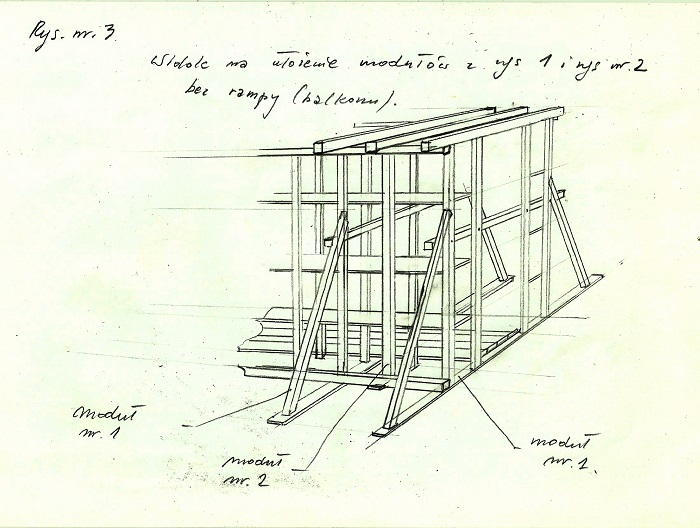 Rys. nr. 3
Widok na ułożenie modułów z rys 1 i rys nr. 2
bez rampy (balkonu).
moduł
nr. 1
moduł
nr. 2
moduł
nr. 1.